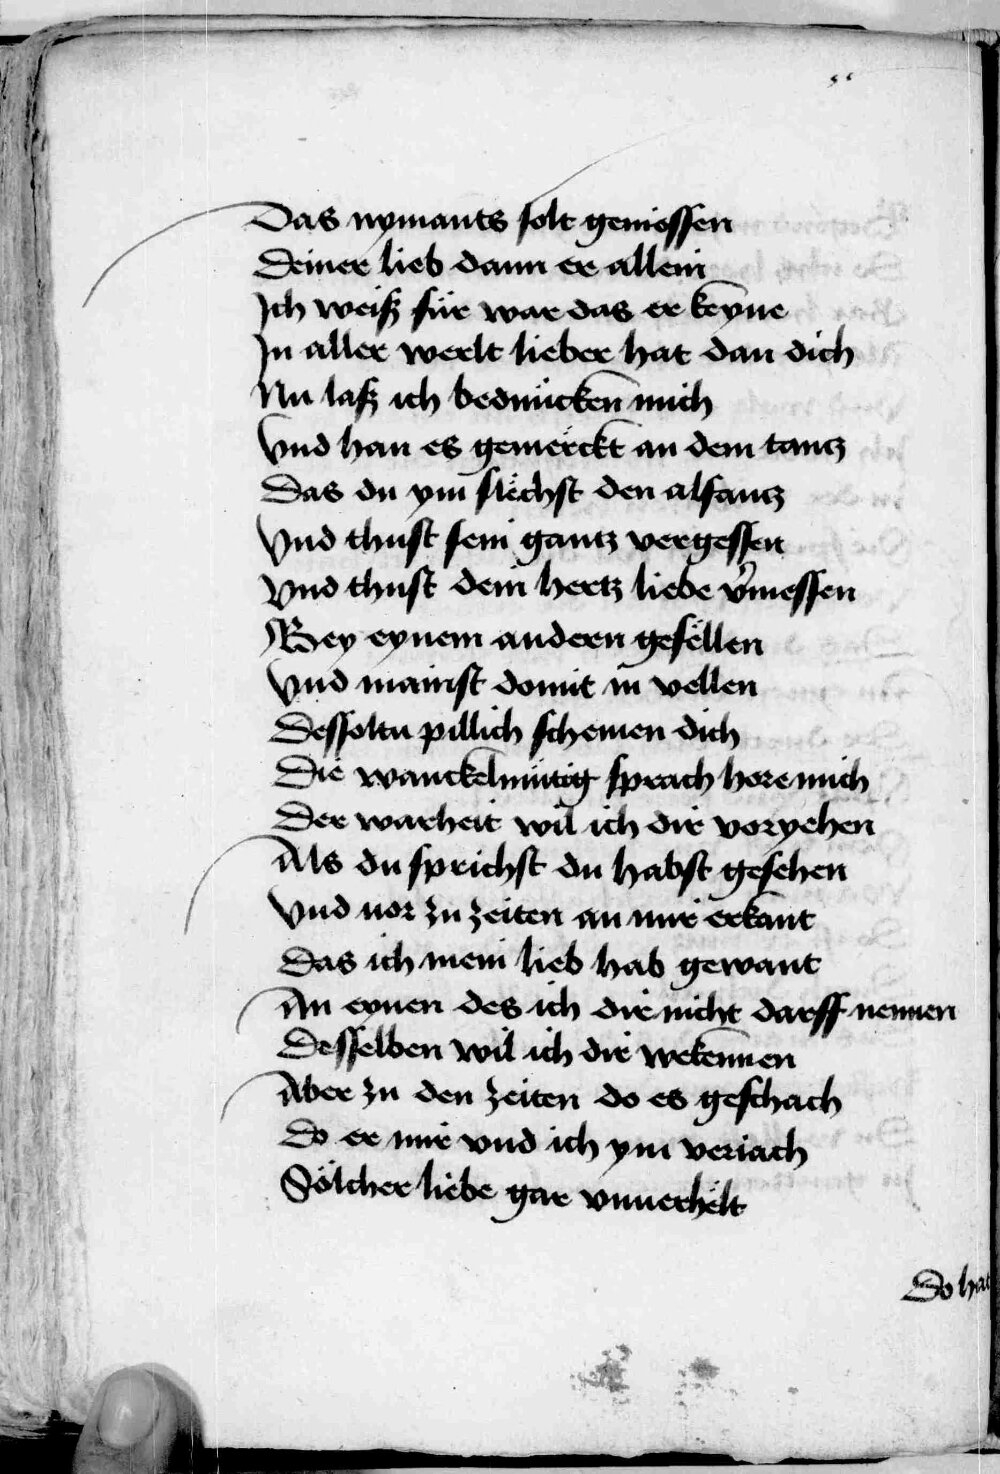 Das nymants solt geniessen
Deiner lieb dann er allein
Ich weiß für war das er keyne
In aller werlt lieber hat dan dich
Nu laß ich beduncken mich
Vnd han es gemerckt an dem tantz
Das du ym slechst den alfantz
Vnd thust sein gantz vergessen
Vnd thust dein hertz liebe v̾messen
Bey eynem andern gesellen
Vnd mainst domit in vellen
Dessoltu pillich schemen dich
Die wanckelmütig sprach hore mich
Der warheit wil ich dir voryehen
Als du sprichst du habst gesehen
Vnd vor zu zeiten an mir erkant
Das ich mein lieb hab gewant
An eynen des ich dir nicht darff nennen
Desselben wil ich dir wekennen
Aber zu den zeiten do es geschach
Do er mir vnd ich ym veriach
Sölcher liebe gar vnuerhelt
Do hat